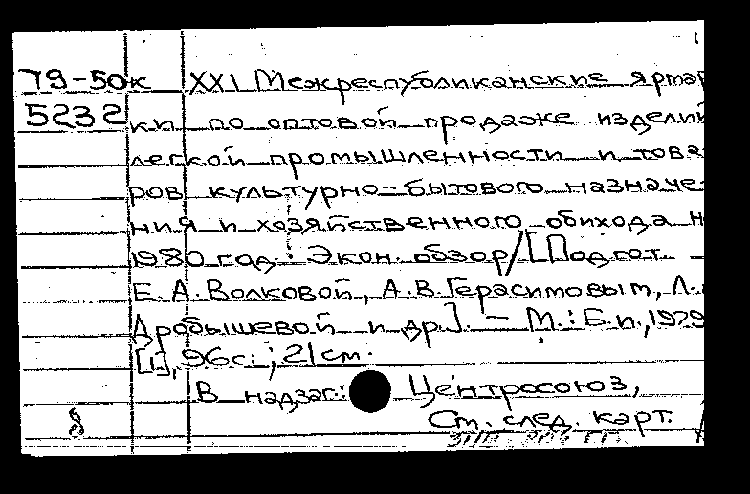 79-50к XXI Межреспубликанские ярмар
5232 ки по оптовой продаже изделий
легкой промышленности и това-
ров культурно-бытового назначе-
ния и хозяйственного обихода н
1980 год : Экон. обзор/[Подгот.
Е.А.Волковой, А.В.Герасимовым, Л.
Дробышевой и др.]. - М. : Б.и., 1979
[1], 96с. ; 21см.
В надзаг.: Центросоюз,
§ Ст. след. карт.